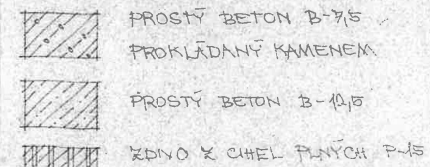 PROSTÝ BETON B-7,5
PROKLÁDANÝ KAMENEM
PROSTÝ BETON B-12,5
ZDIVO Z CIHEL PLNÝCH P-15